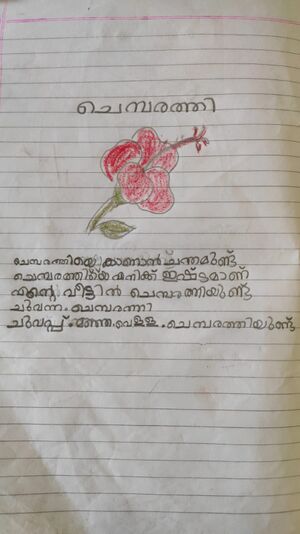 ചെമ്പരത്തി
ചെമ്പരത്തിയെ കാണാൻ ചന്തമുണ്ടു
ചെമ്പരത്തിയെ എനിക്ക് ഇഷ്ട്ടമാണ്
എന്റെ വീട്ടിൽ ചെമ്പരത്തിയുണ്ടു
ചുവന്ന ചെമ്പരത്തി
ചുവപ്പ് മഞ്ഞ വെള്ള ചെമ്പരത്തിയുണ്ടു